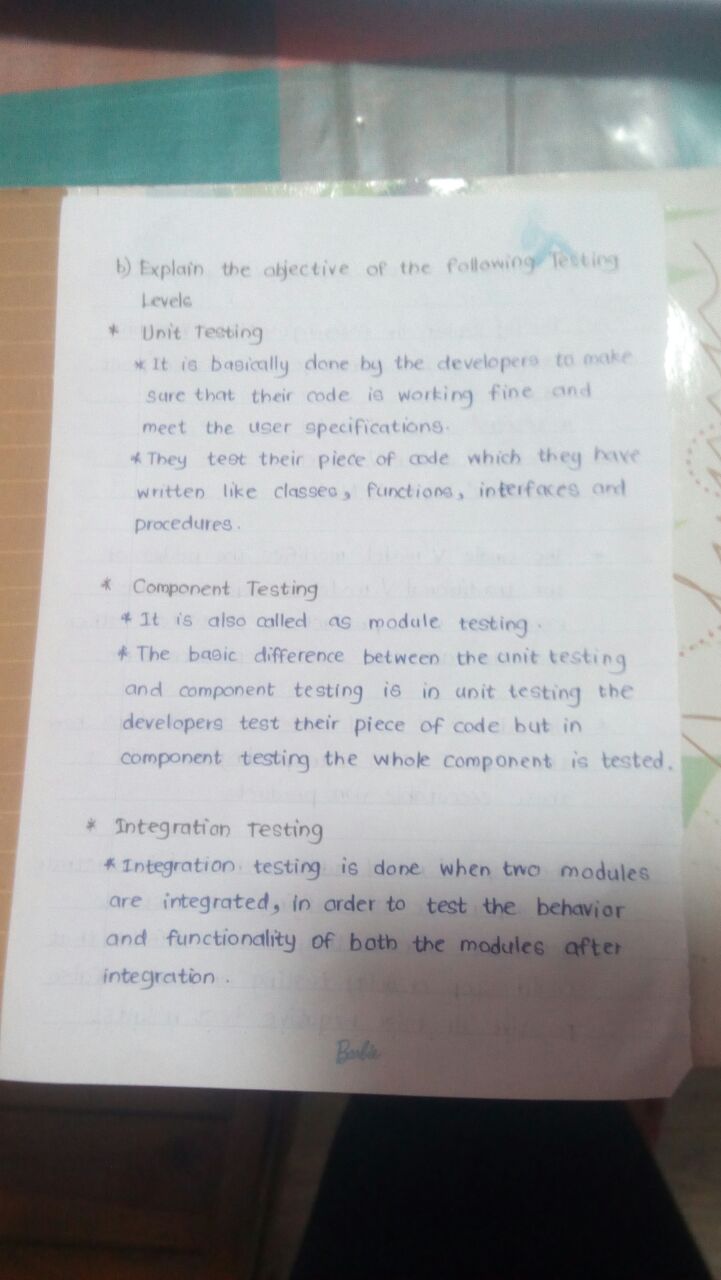 b) Explain the objective of the following Testing
Levels
* Unit Testing
* It is basically done by the developers to make
sure that their code is working fine and
meet the user specifications.
* They test their piece of code which they have
written like classes, functions, interfaces and
procedures.
* Component Testing
* It is also called as module testing.
* The basic difference between the unit testing
and component testing is in unit testing the
developers test their piece of code but in
component testing the whole component is tested.
* Integration Testing
* Integration testing is done when two modules
are integrated, in order to test the behavior
and functionality of both the modules after
integration.
Barbie